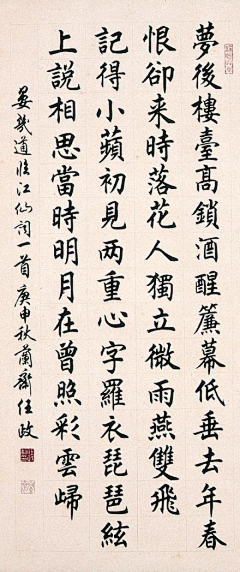 夢後樓臺高鎖酒醒簾幕低垂去年春
恨卻来時落花人獨立微雨燕雙飛
記得小蘋初見两重心字羅衣琵琶絃
上説相思當時明月在曾照彩雲歸
晏幾道臨江仙詞一首 庚申秋蘭齋任政